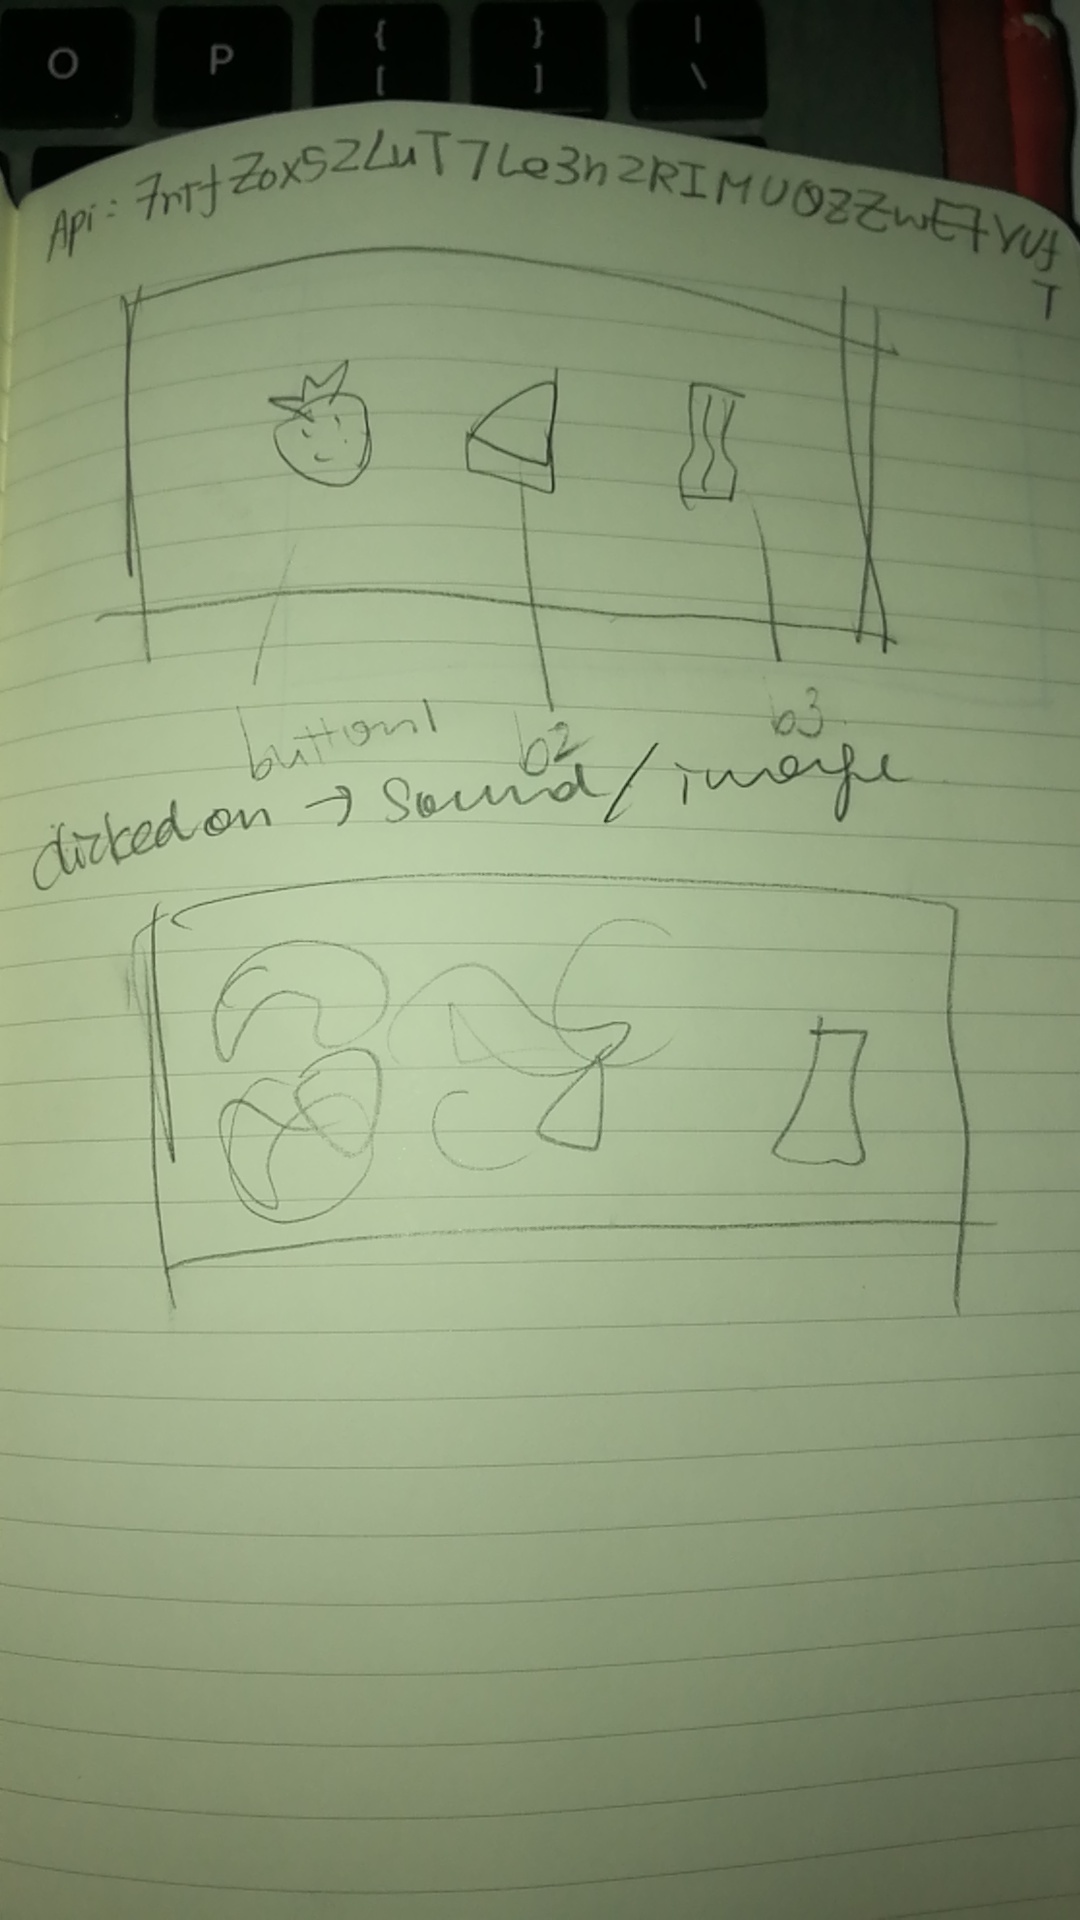 O P { [ } ] | \
Api: 7nTfZoxS2LuT7Le3n2RIMUOZZwE7VUf
T
button1 b2 b3
clicked on → Sound / image